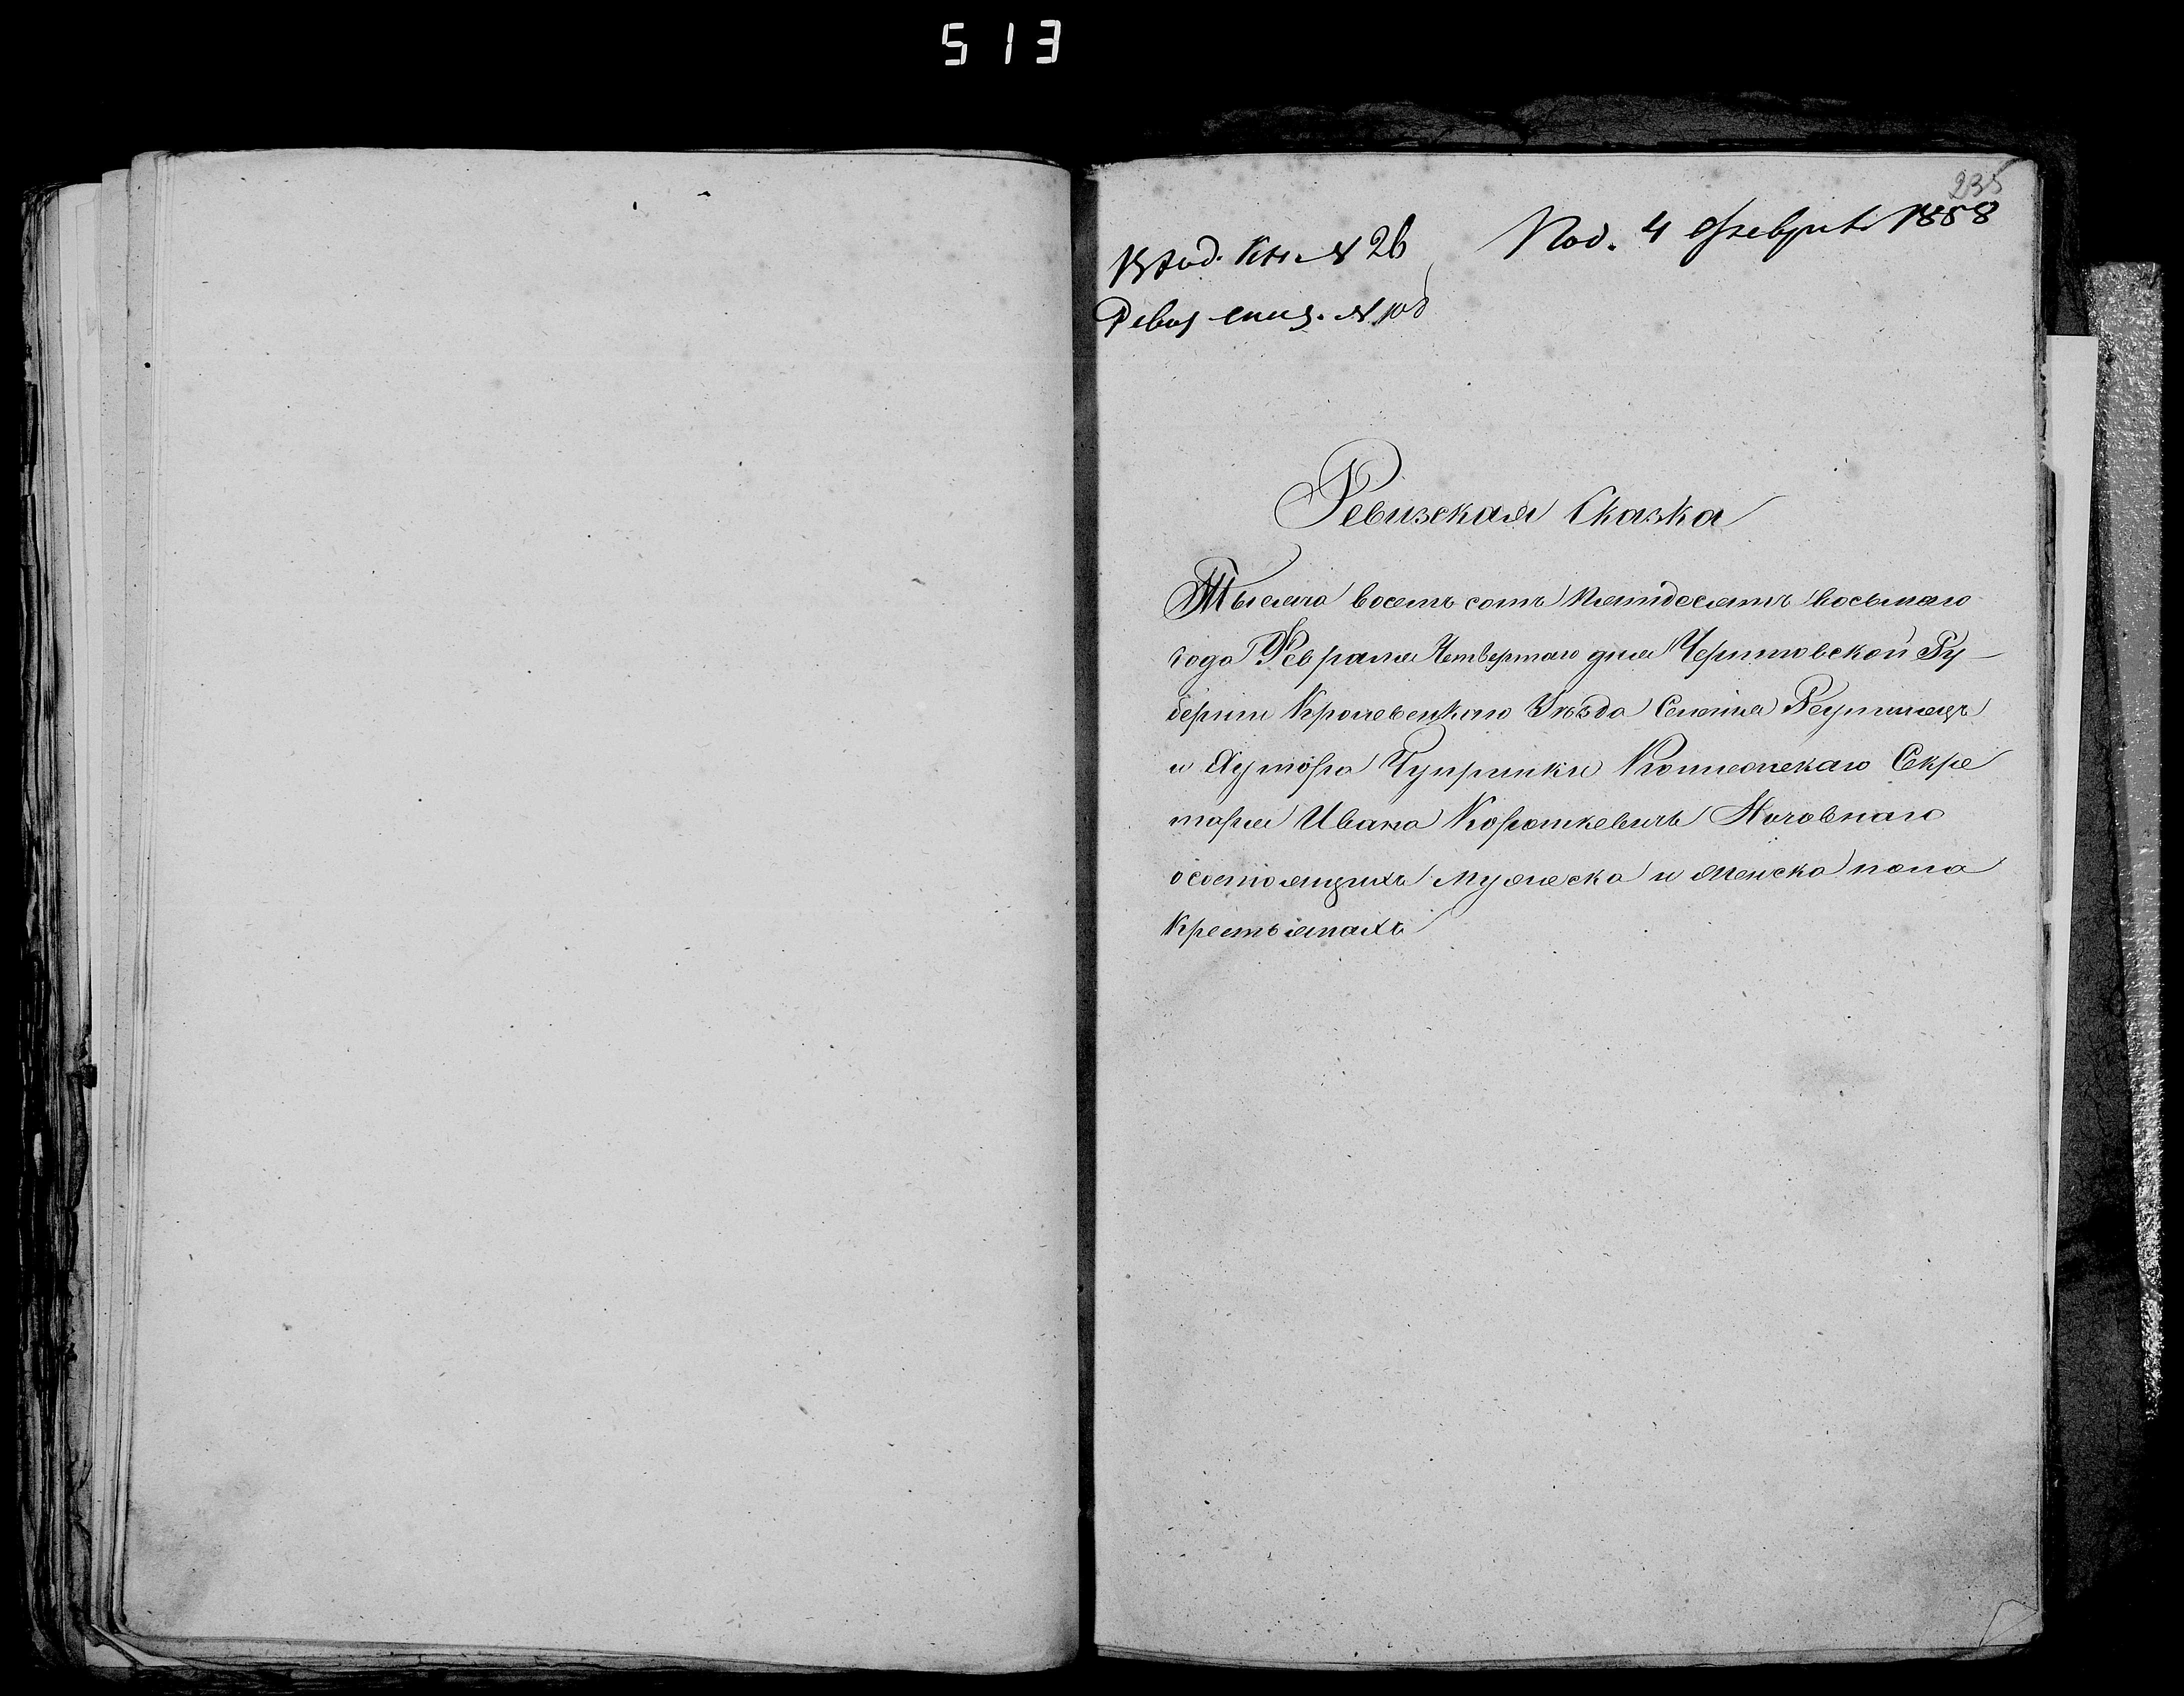 513
235
Вход. Кн. № 26 Под. 4 Февраля 1858
Ревиз. спис. №
Ревизская Сказка
Тысяча восемь сотъ пятидесятъ восьмаго
года Февраля Четвертаго дня Черниговской Гу-
берніи Кролевецкаго Уѣзда Селенія Реутинецъ
и Хутора Чупринки Коллежскаго Секре
таря Ивана Коропкевичь Ничовнаго
осостоящихъ мужеска и женска пола
Крестьянахъ